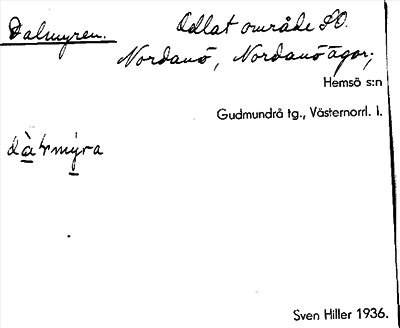 Dalmyren. Odlat område SO.
Nordanö, Nordanö ägor;
Hemsö s:n
Gudmundrå tg., Västernorrl. l.
Sven Hiller 1936.